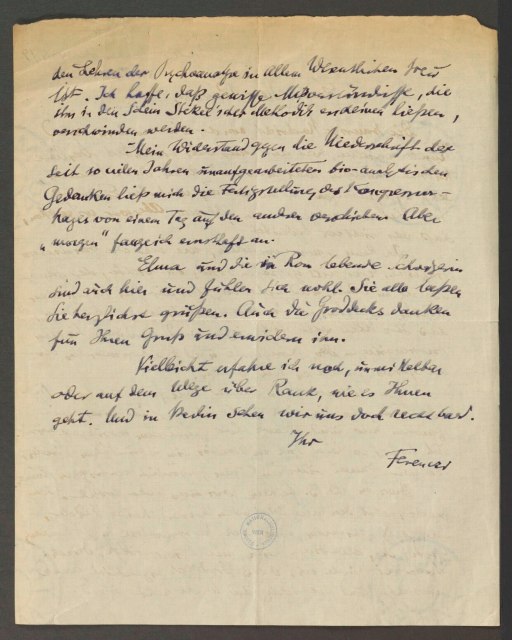 den Lehren der Psychoanalyse in allem Wesentlichen treu
ist. Ich hoffe, daß gewisse Missverständnisse, die
ihn in den Schein Stekel'scher Methodik erscheinen ließen,
verschwinden werden.
Mein Widerstand gegen die Niederschrift der
seit so vielen Jahren unaufgearbeiteten bio-analytischen
Gedanken ließ mich die Fertigstellung des Kongressvor-
trages von einem Tag auf den anderen verschieben. Aber
„morgen" fange ich ernsthaft an.
Elma und die in Rom lebende Schwägerin
sind auch hier und fühlen sich wohl. Sie alle lassen
Sie herzlichst grüßen. Auch die Groddecks danken
für Ihren Gruß und erwidern ihn.
Vielleicht erfahre ich noch, unmittelbar
oder auf dem Wege über Rank, wie es Ihnen
geht. Und in Berlin sehen wir uns doch recht bald.
Ihr
Ferenczi